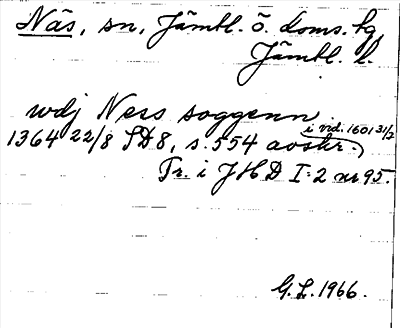 Näs, sn, Jämtl. ö. doms. hg,
Jämtl. l.
wdj Ness soggenn
i vid. 1601 31/7
1364 22/8 SD8, s. 554 avskr.)
Tr. i JHD I:2 nr 95.
G.L. 1966.